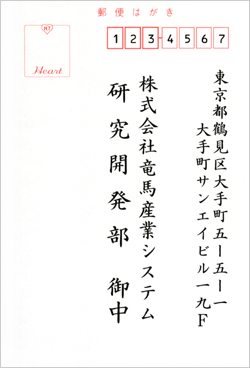 郵便はがき
1234567
H7
Heart
東京都鶴見区大手町五ー五ー一
大手町サンエイビル一九F
株式会社竜馬産業システム
研究開発部 御中